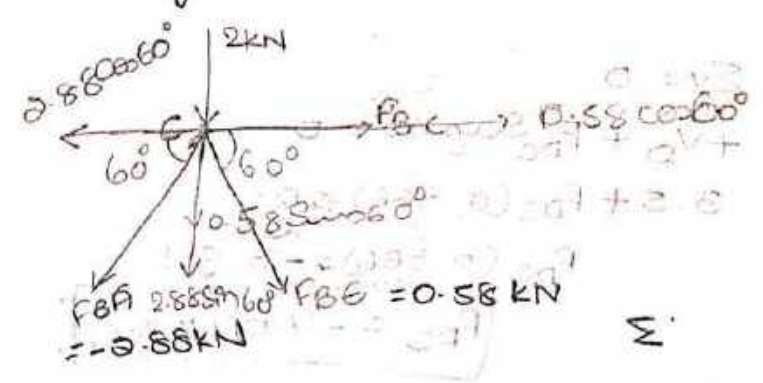 2kN
2.88Cos60°
FBC
0.58 cos60°
60°
60°
0.58Sin60°
FBA 2.88Sin60° FBE = 0.58 KN
= -2.88kN
Σ